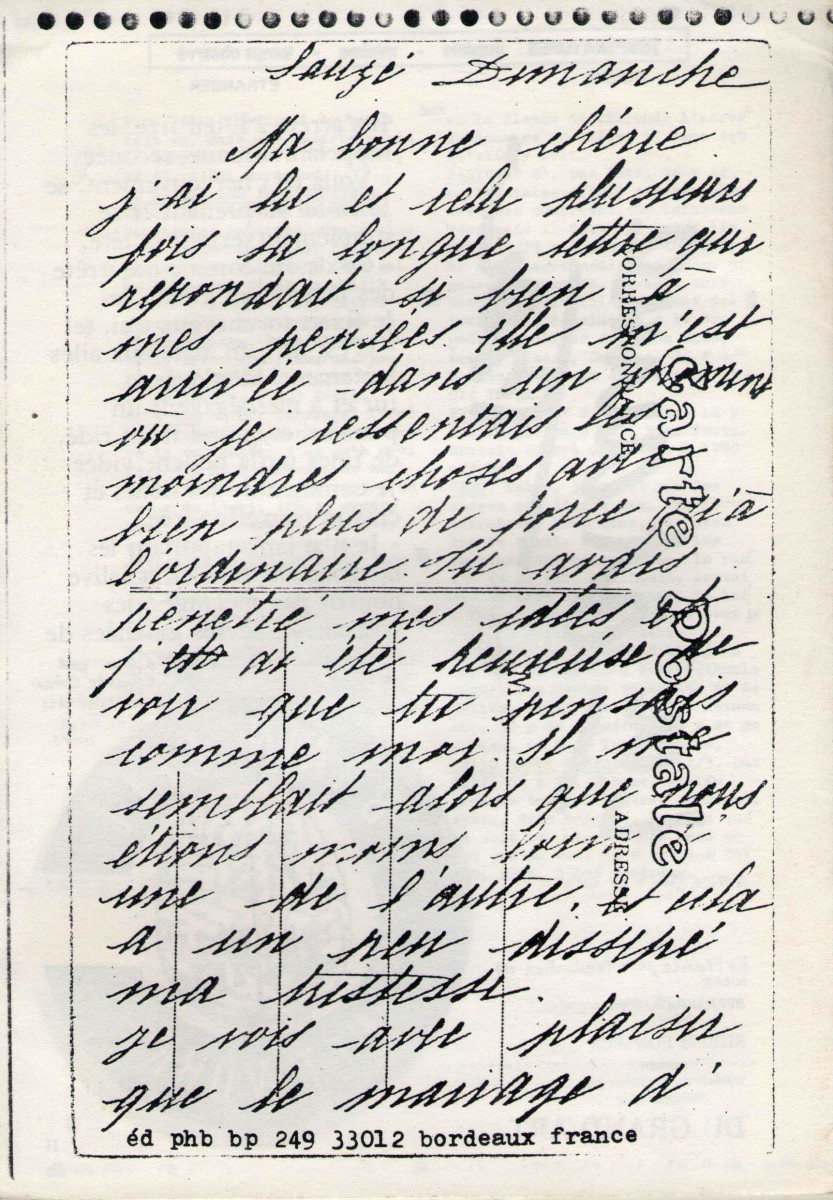 Sauzé Dimanche
Ma bonne chérie
j'ai lu et relu plusieurs
fois ta longue lettre qui
repondait si bien à
mes pensées. Elle m'est
arrivée dans un moment
ou je ressentais les
moindres choses avec
bien plus de force qu'à
l'ordinaire tu avais
pénétré mes idées et
j'ai été heureuse de
voir que tu pensais
comme moi. il me
semblait alors que nous
étions moins loin
une de l'autre. et cela
a un peu dissipé
ma tristesse.
je vois avec plaisir
que le mariage d'
Carte Postale
CORRESPONDANCE
ADRESSE
M
éd phb bp 249 33012 bordeaux france